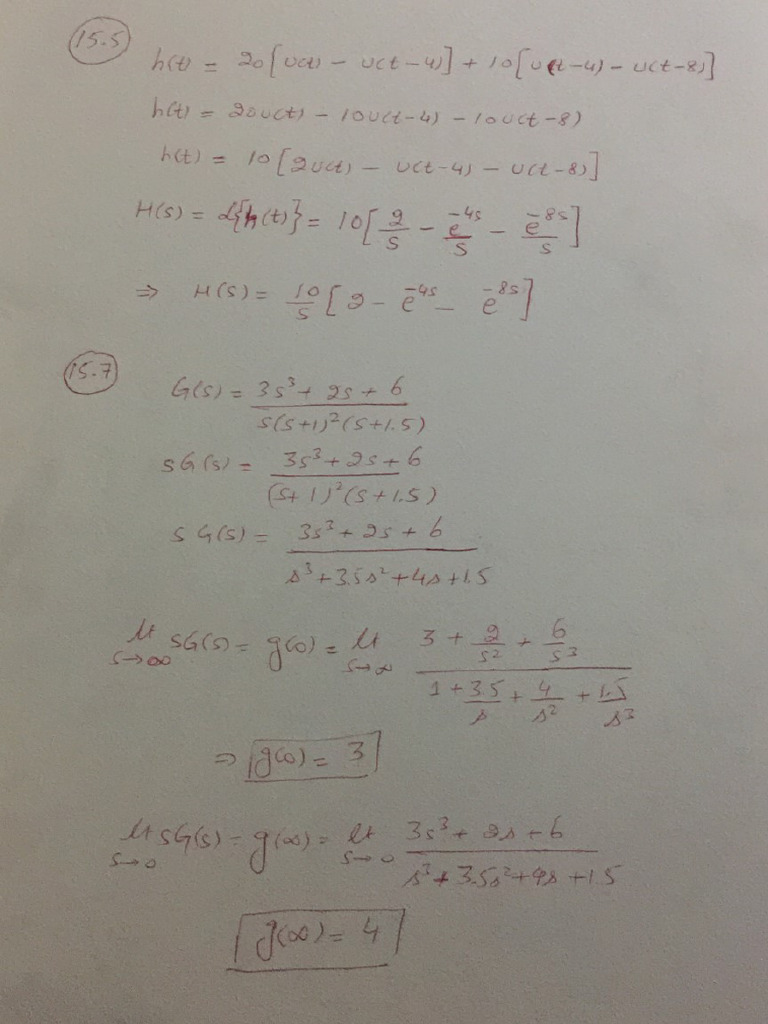 15.5
h(t) = 20[u(t) - u(t-4)] + 10[u(t-4) - u(t-8)]
h(t) = 20u(t) - 10u(t-4) - 10u(t-8)
h(t) = 10[2u(t) - u(t-4) - u(t-8)]
H(s) = ℒ{h(t)} = 10[2/s - e^-4s/s - e^-8s/s]
⇒ H(s) = 10/s [2 - e^-4s - e^-8s]
15.7
G(s) = (3s³ + 2s + 6)/(s(s+1)²(s+1.5))
sG(s) = (3s³ + 2s + 6)/((s+1)²(s+1.5))
sG(s) = (3s³ + 2s + 6)/(s³ + 3.5s² + 4s + 1.5)
lt s→∞ sG(s) = g(0) = lt s→∞ (3 + 2/s² + 6/s³)/(1 + 3.5/s + 4/s² + 1.5/s³)
⇒ g(0) = 3
lt s→0 sG(s) = g(∞) = lt s→0 (3s³ + 2s + 6)/(s³ + 3.5s² + 4s + 1.5)
g(∞) = 4